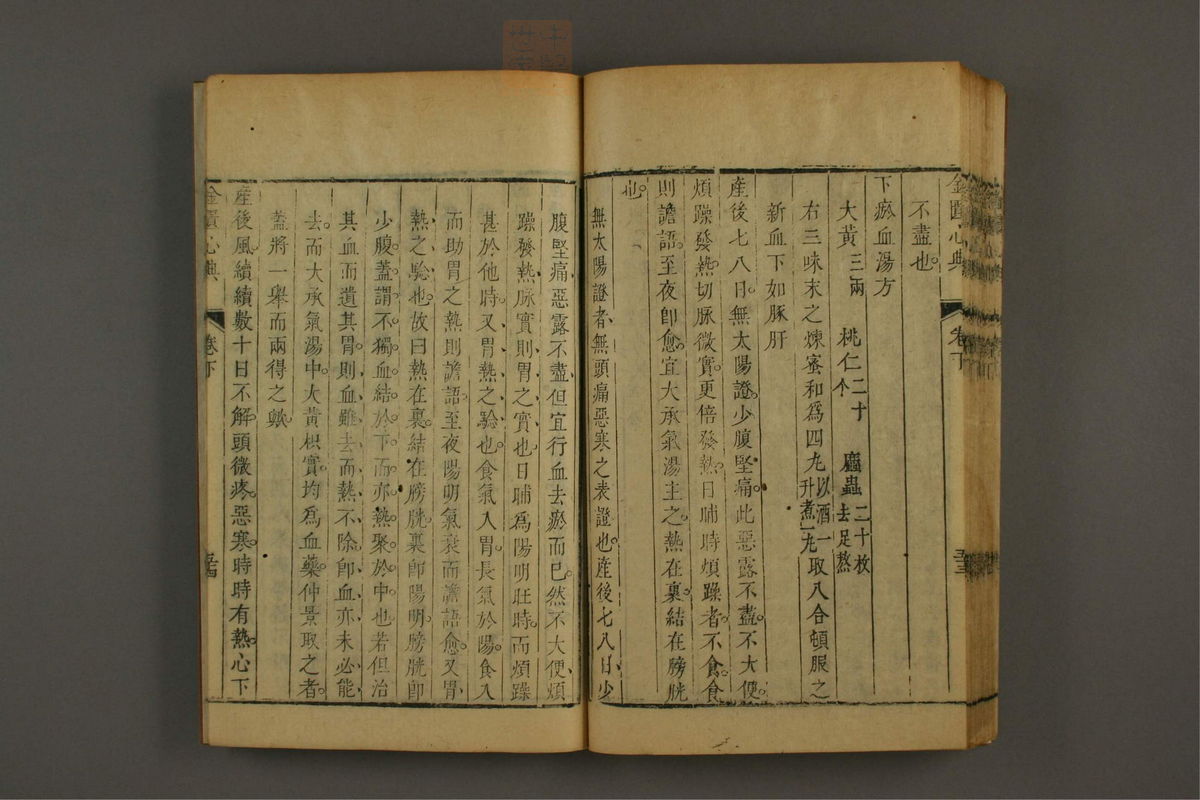 金匱心典 卷下 五三
不盡也
下瘀血湯方
大黃三兩 桃仁二十个 䗪蟲二十枚去足熬
右三味末之煉蜜和爲四丸以酒一升煮一丸取八合頓服之
新血下如豚肝
產後七八日無太陽證少腹堅痛此惡露不盡不大便
煩躁發熱切脉微實更倍發熱日晡時煩躁者不食食
則譫語至夜卽愈宜大承氣湯主之熱在裏結在膀胱
也
無太陽證者無頭痛惡寒之表證也產後七八日少
腹堅痛惡露不盡但宜行血去瘀而已然不大便煩
躁發熱脉實則胃之實也日晡爲陽明旺時而煩躁
甚於他時又胃熱之驗也食氣入胃長氣於陽食入
而助胃之熱則譫語至夜陽明氣衰而譫語愈又胃
熱之驗也故曰熱在裏結在膀胱裏卽陽明膀胱卽
少腹蓋謂不獨血結於下而亦熱聚於中也若但治
其血而遺其胃則血雖去而熱不除卽血亦未必能
去而大承氣湯中大黃枳實均爲血藥仲景取之者
蓋將一舉而兩得之歟
產後風續續數十日不解頭微疼惡寒時時有熱心下
金匱心典 卷下 五四